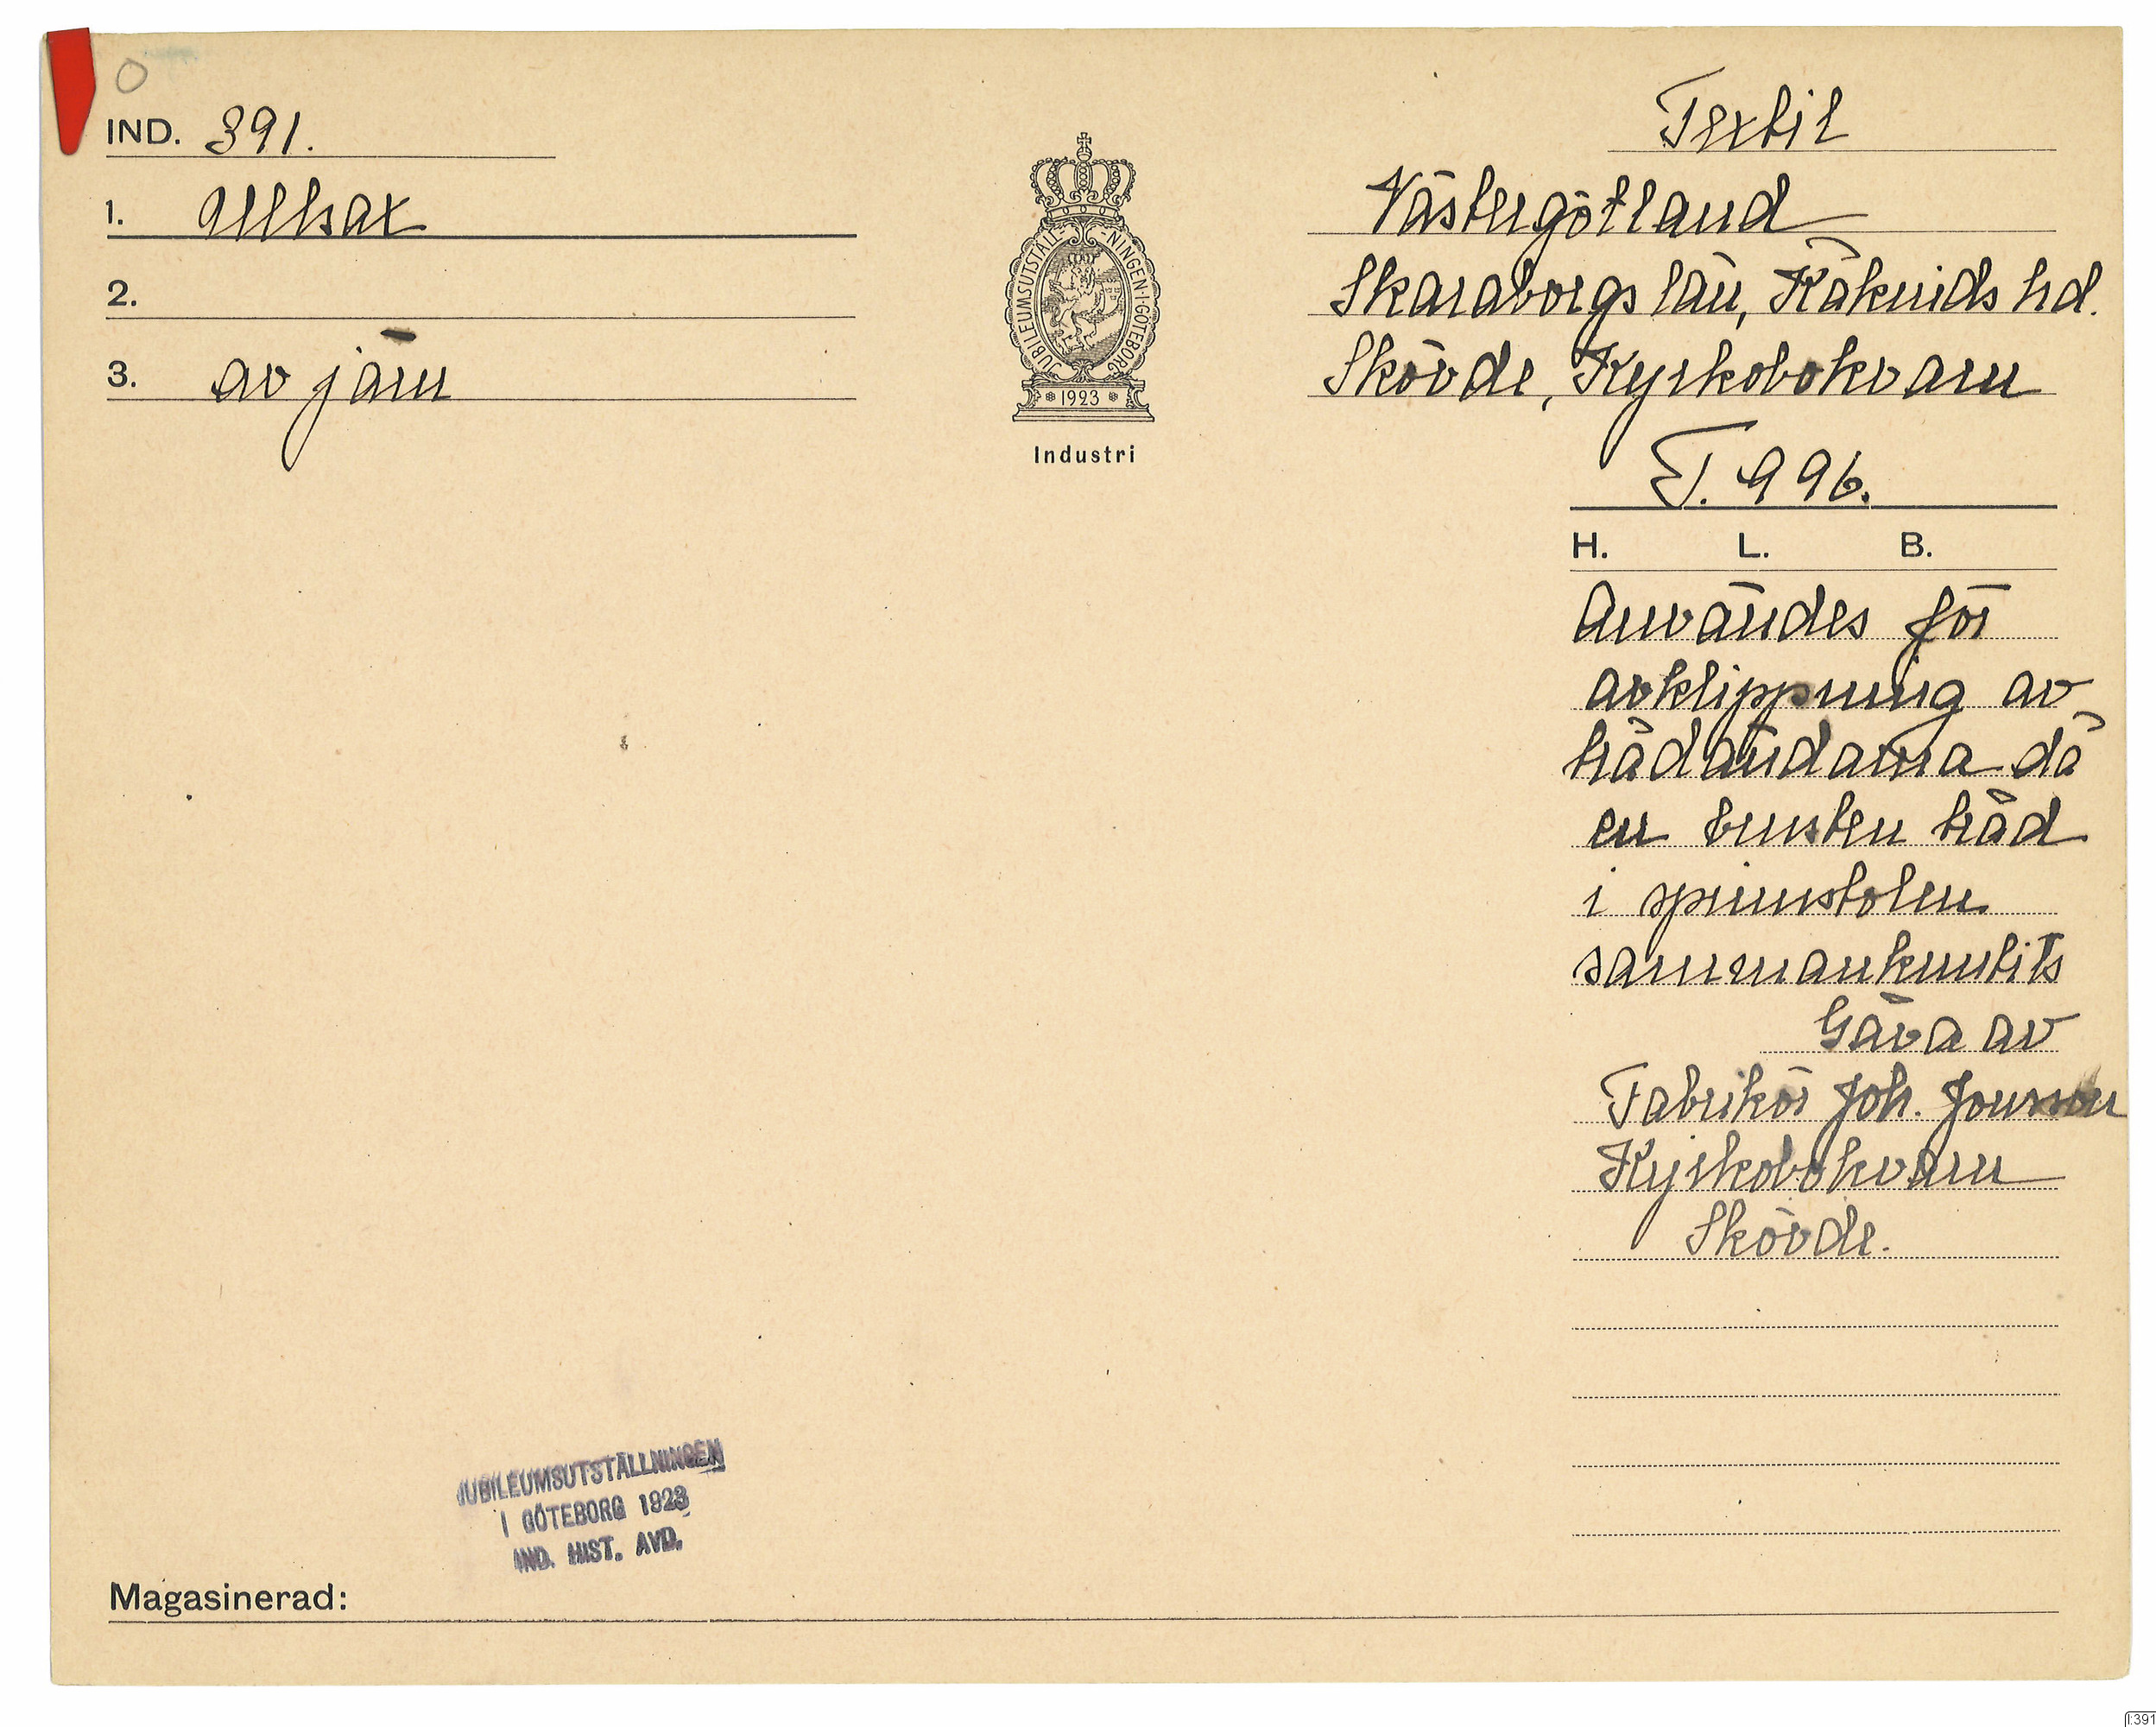 O
IND. 391.
1. Ullsax
2.
3. av järn
JUBILEUMSUTSTÄLL-NINGEN·I·GÖTEBORG
1923
Industri
Textil
Västergötland
Skaraborgs län, Kåkinds hd.
Skövde, Kyrkobokvarn
T. 996.
H. L. B.
Användes för
avklippning av
trådändarna då
en brusten tråd
i spinnstolen
sammanknutits
Gåva av
Fabrikör Joh. Jonsson
Kyrkobokvarn
Skövde.
JUBILEUMSUTSTÄLLNINGEN
I GÖTEBORG 1923
IND. HIST. AVD.
Magasinerad:
I:391